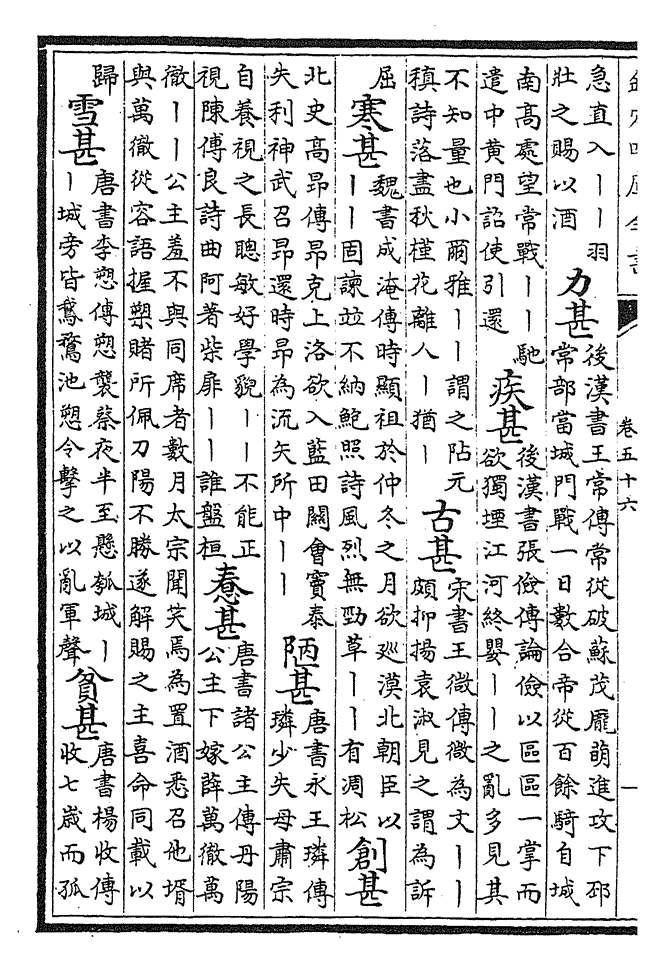 欽定四庫全書
卷五十六
急直入丨丨羽
壯之賜以酒
力甚
後漢書王常傳常從破蘇茂龎萌進攻下邳
常部當城門戰一日數合帝從百餘騎自城
南髙處望常戰丨丨馳
遣中黄門詔使引還
疾甚
後漢書張儉傳論儉以區區一掌而
欲獨堙江河終嬰丨丨之亂多見其
不知量也小爾雅丨丨謂之阽元
稹詩落盡秋槿花離人丨猶丨
古甚
宋書王微傳微為文丨丨
頗抑揚袁淑見之謂為訴
屈
寒甚
魏書成淹傳時顯祖於仲冬之月欲廵漠北朝臣以
丨丨固諫竝不納鮑照詩風烈無勁草丨丨有凋松
創甚
北史高昂傳昂克上洛欲入藍田關會竇泰
失利神武召昂還時昂為流矢所中丨丨
陋甚
唐書永王璘傳
璘少失母肅宗
自養視之長聰敏好學貌丨丨不能正
視陳傅良詩曲阿著柴扉丨丨誰盤桓
惷甚
唐書諸公主傳丹陽
公主下嫁薛萬徹萬
徹丨丨公主羞不與同席者數月太宗聞笑焉為置酒悉召他壻
與萬徹從容語握槊賭所佩刀陽不勝遂解賜之主喜命同載以
歸
雪甚
唐書李愬傳愬襲蔡夜半至懸瓠城丨
丨城旁皆鵝鶩池愬令擊之以亂軍聲
貧甚
唐書楊收傳
收七歲而孤